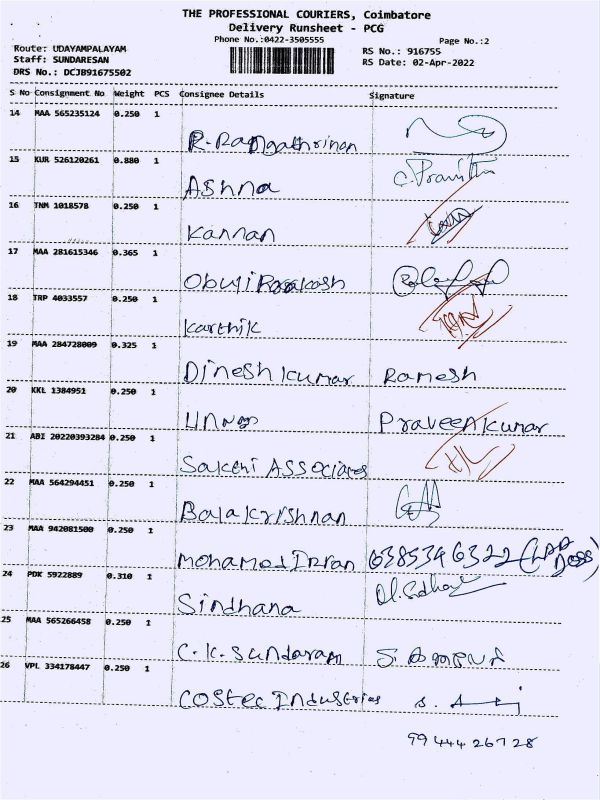 THE PROFESSIONAL COURIERS, Coimbatore
Delivery Runsheet - PCG
Phone No.:0422-3505555
Page No.:2
Route: UDAYAMPALAYAM
RS No.: 916755
Staff: SUNDARESAN
RS Date: 02-Apr-2022
DRS No.: DCJB91675502
S No Consignment No Weight PCS Consignee Details Signature
14 MAA 565235124 0.250 1
15 KUR 526120261 0.880 1
Ashna
16 TNM 1018578 0.250 1
Kannan
17 MAA 281615346 0.365 1
18 TRP 4033557 0.250 1
Karthik
19 MAA 284728009 0.325 1
Dinesh kumar Ramesh
20 KKL 1384951 0.250 1
Praveenkumar
21 ABI 20220393284 0.250 1
Associates
22 MAA 564294451 0.250 1
Balakrishnan
23 MAA 942081500 0.250 1
Mohamed 6385346322
24 PDK 5922889 0.310 1
Sindhana
25 MAA 565266458 0.250 1
C.K. Sundaram
26 VPL 334178447 0.250 1
Costec Industries
99444 26728